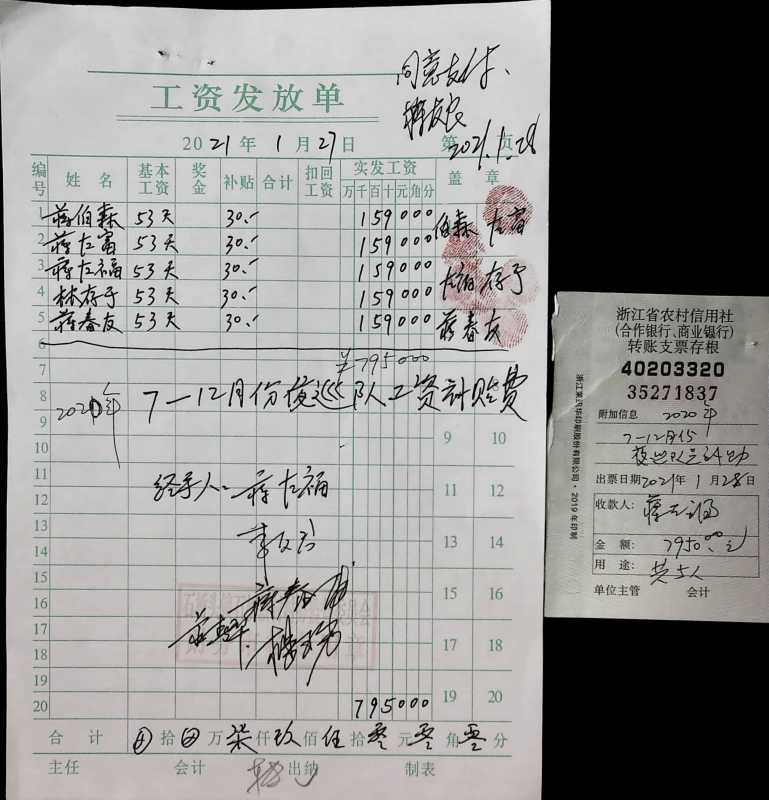 同意支付、
2021.1.28
工资发放单
2021年1月27日
第 页
编号 姓名 基本工资 奖金 补贴 合计 扣回工资 实发工资 盖章
万千百十元角分
1 蒋伯森 53天 30.- 159000 伯森 左富
2 蒋左富 53天 30.- 159000
3 蒋左福 53天 30.- 159000 存于
4 林存于 53天 30.- 159000
5 蒋春友 53天 30.- 159000 蒋春友
6
7 ¥795000
8 2020年 7-12月份夜巡队工资补贴费
9 9 10
10
11 经手人:蒋左福 11 12
12
13 13 14
14
15 15 16
16
17 17 18
18
19 19 20
20 795000
合计 拾 万柒仟玖佰伍拾零元零角零分
主任 会计 出纳 制表
浙江省农村信用社
(合作银行、商业银行)
转账支票存根
40203320
35271837
附加信息 2020年
7-12月份
夜巡队员补助
出票日期2021年1月28日
收款人:蒋左福
金额:7950.00元
用途:劳务人
单位主管 会计
2019年印制